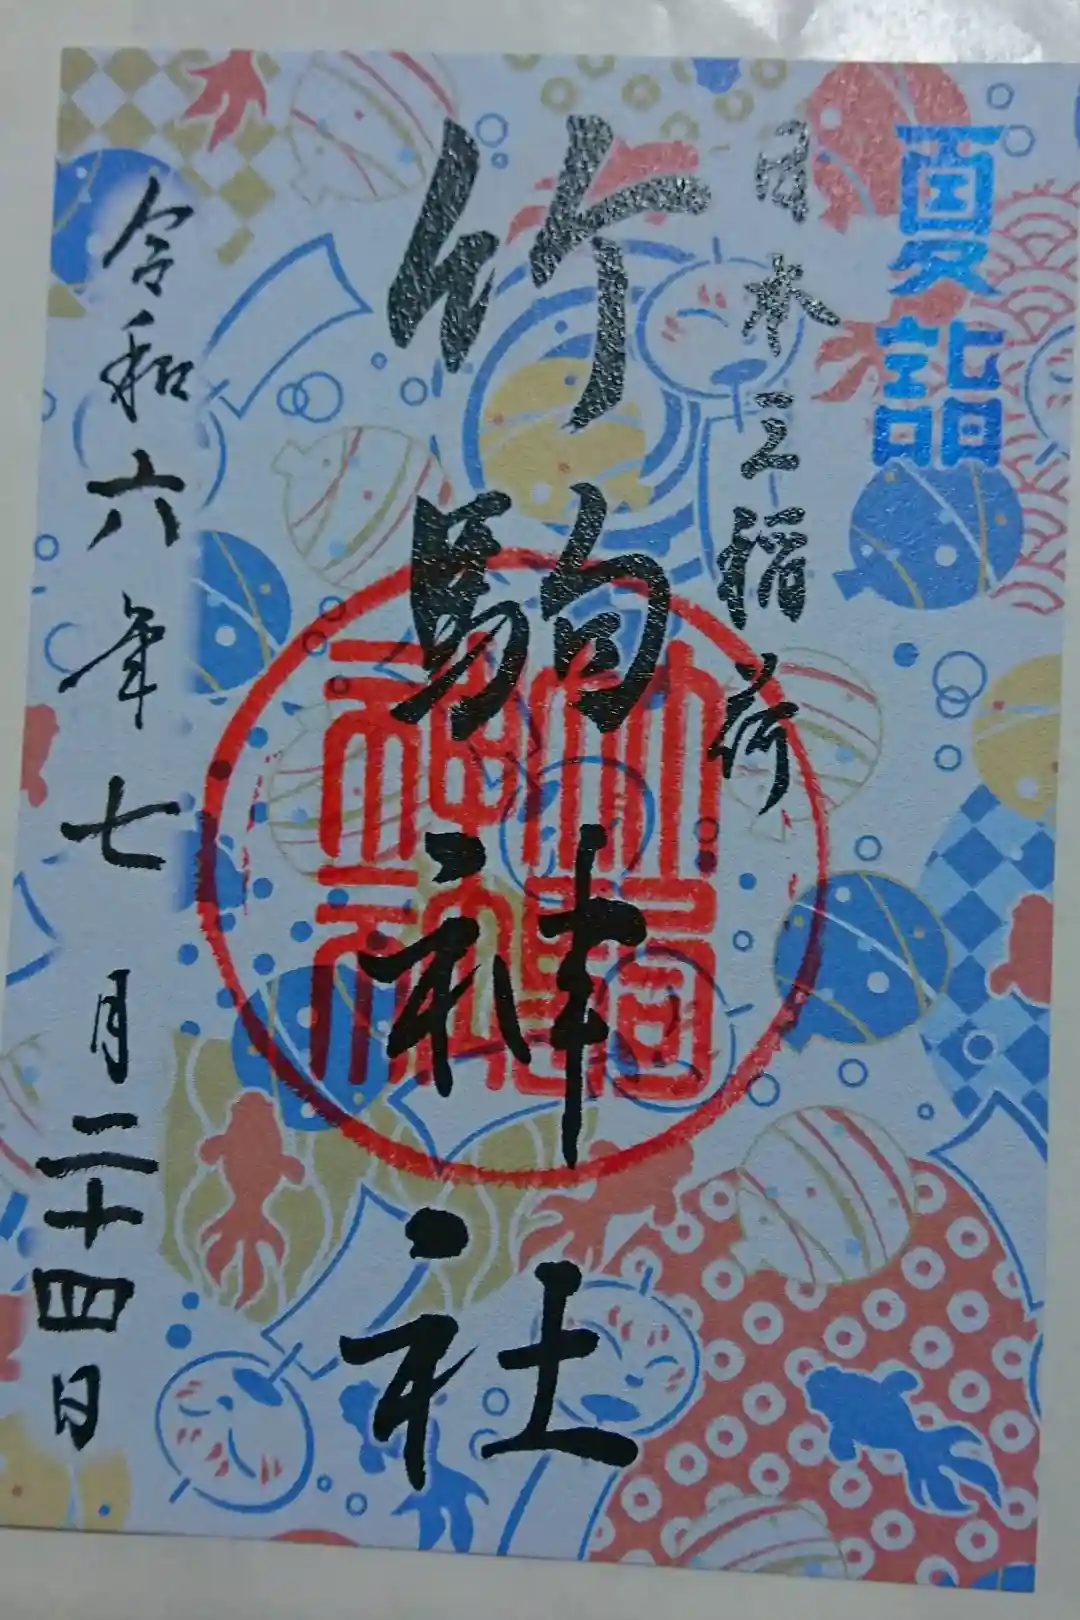 夏詣
日本三稲荷
竹駒神社
竹駒神社
令和六年七月二十四日